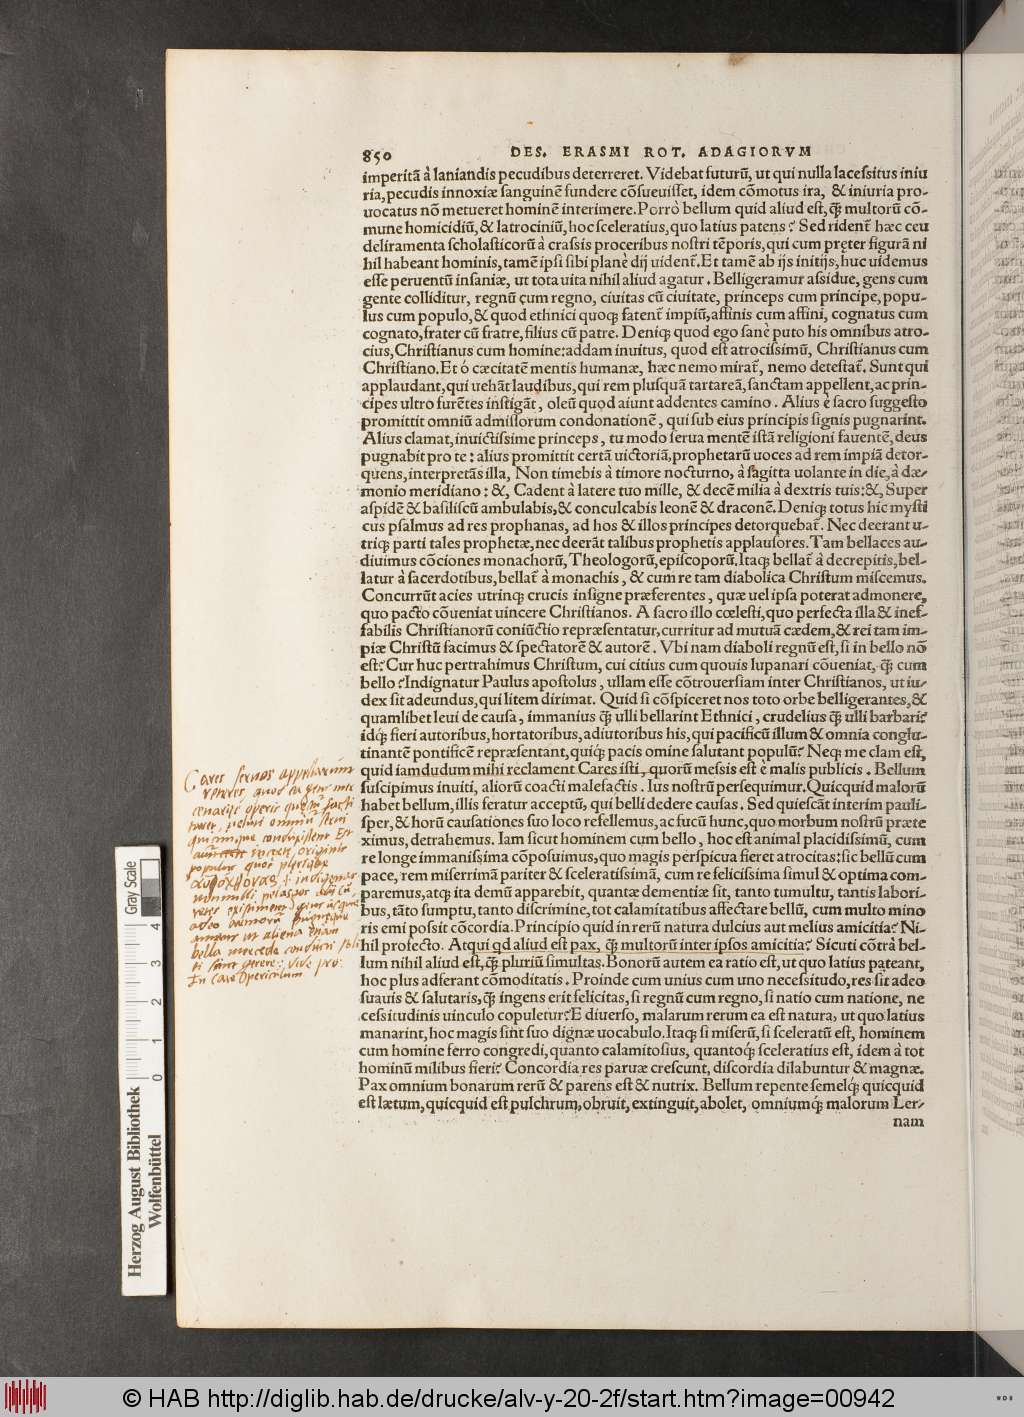 850 DES. ERASMI ROT. ADAGIORVM
imperitā à laniandis pecudibus deterreret. Videbat futurū, ut qui nulla lacessitus iniu
ria, pecudis innoxiæ sanguinē fundere cōsueuisset, idem cōmotus ira, & iniuria pro-
uocatus nō metueret hominē interimere. Porrò bellum quid aliud est, q̄ʒ multorū cō-
mune homicidiū, & latrociniū, hoc sceleratius, quo latius patens? Sed rident̄ hæc ceu
deliramenta scholasticorū à crassis proceribus nostri tēporis, qui cum præter figurā ni
hil habeant hominis, tamē ipsi sibi planè dij uident̄. Et tamē ab ijs initijs, huc uidemus
esse peruentū insaniæ, ut tota uita nihil aliud agatur. Belligeramur assidue, gens cum
gente colliditur, regnū cum regno, ciuitas cū ciuitate, princeps cum principe, popu-
lus cum populo, & quod ethnici quoqꝫ fatent̄ impiū, affinis cum affini, cognatus cum
cognato, frater cū fratre, filius cū patre. Deniqꝫ quod ego sanè puto his omnibus atro-
cius, Christianus cum homine: addam inuitus, quod est atrocissimū, Christianus cum
Christiano. Et ó cæcitatē mentis humanæ, hæc nemo mirat̄, nemo detestat̄. Sunt qui
applaudant, qui uehāt laudibus, qui rem plusquā tartareā, sanctam appellent, ac prin-
cipes ultro furētes instigāt, oleū quod aiunt addentes camino. Alius è sacro suggesto
promittit omniū admissorum condonationē, qui sub eius principis signis pugnarint.
Alius clamat, inuictissime princeps, tu modo serua mentē istā religioni fauentē, deus
pugnabit pro te: alius promittit certā uictoriā, prophetarū uoces ad rem impiā detor-
quens, interpretās illa, Non timebis à timore nocturno, à sagitta uolante in die, à dæ-
monio meridiano: &, Cadent à latere tuo mille, & decē milia à dextris tuis: &, Super
aspidē & basiliscū ambulabis, & conculcabis leonē & draconē. Deniqꝫ totus hic mysti
cus psalmus ad res prophanas, ad hos & illos principes detorquebat̄. Nec deerant u-
triqꝫ parti tales prophetæ, nec deerāt talibus prophetis applausores. Tam bellaces au-
diuimus cōciones monachorū, Theologorū, episcoporū. Itaqꝫ bellat̄ à decrepitis, bel-
latur à sacerdotibus, bellat̄ à monachis, & cum re tam diabolica Christum miscemus.
Concurrūt acies utrinqꝫ crucis insigne præferentes, quæ uel ipsa poterat admonere,
quo pacto cōueniat uincere Christianos. A sacro illo cœlesti, quo perfecta illa & inef-
fabilis Christianorū coniūctio repræsentatur, curritur ad mutuā cædem, & rei tam im-
piæ Christū facimus & spectatorē & autorē. Vbi nam diaboli regnū est, si in bello nō
est? Cur huc pertrahimus Christum, cui citius cum quouis lupanari cōueniat, q̄ʒ cum
bello? Indignatur Paulus apostolus, ullam esse cōtrouersiam inter Christianos, ut iu-
dex sit adeundus, qui litem dirimat. Quid si cōspiceret nos toto orbe belligerantes, &
quamlibet leui de causa, immanius q̄ʒ ulli bellarint Ethnici, crudelius q̄ʒ ulli barbari?
idqꝫ fieri autoribus, hortatoribus, adiutoribus his, qui pacificū illum & omnia conglu-
tinantē pontificē repræsentant, quiqꝫ pacis omine salutant populū? Neqꝫ me clam est,
quid iamdudum mihi reclament Cares isti, quorū messis est è malis publicis. Bellum
suscipimus inuiti, aliorū coacti malefactis. Ius nostrū persequimur. Quicquid malorū
habet bellum, illis feratur acceptū, qui belli dedere causas. Sed quiescāt interim pauli-
sper, & horū causationes suo loco refellemus, ac fucū hunc, quo morbum nostrū præte
ximus, detrahemus. Iam sicut hominem cum bello, hoc est animal placidissimū, cum
re longe immanissima cōposuimus, quo magis perspicua fieret atrocitas: sic bellū cum
pace, rem miserrimā pariter & sceleratissimā, cum re felicissima simul & optima com-
paremus, atqꝫ ita demū apparebit, quantæ dementiæ sit, tanto tumultu, tantis labori-
bus, tāto sumptu, tanto discrimine, tot calamitatibus affectare bellū, cum multo mino
ris emi possit cōcordia. Principio quid in rerū natura dulcius aut melius amicitia? Ni-
hil profecto. Atqui qd aliud est pax, q̄ʒ multorū inter ipsos amicitia? Sicuti cōtrà bel-
lum nihil aliud est, q̄ʒ pluriū simultas. Bonorū autem ea ratio est, ut quo latius pateant,
hoc plus adferant cōmoditatis. Proinde cum unius cum uno necessitudo, res sit adeo
suauis & salutaris, q̄ʒ ingens erit felicitas, si regnū cum regno, si natio cum natione, ne
cessitudinis uinculo copuletur? E diuerso, malarum rerum ea est natura, ut quo latius
manarint, hoc magis sint suo dignæ uocabulo. Itaqꝫ si miserū, si sceleratū est, hominem
cum homine ferro congredi, quanto calamitosius, quantoqꝫ sceleratius est, idem à tot
hominū milibus fieri? Concordia res paruæ crescunt, discordia dilabuntur & magnæ.
Pax omnium bonarum rerū & parens est & nutrix. Bellum repente semelqꝫ quicquid
est lætum, quicquid est pulchrum, obruit, extinguit, abolet, omniumqꝫ malorum Ler-
nam
Cares seruos appellarunt
ueteres, quod ea gens
populus
αυθοχθονας
indigenas
nonnulli pelasgos
ueteres existiment
ut aliena etiam
bella mercede conducti
In Care periculum
Gray Scale
4
3
2
1
0
Herzog August Bibliothek
Wolfenbüttel
© HAB http://diglib.hab.de/drucke/alv-y-20-2f/start.htm?image=00942